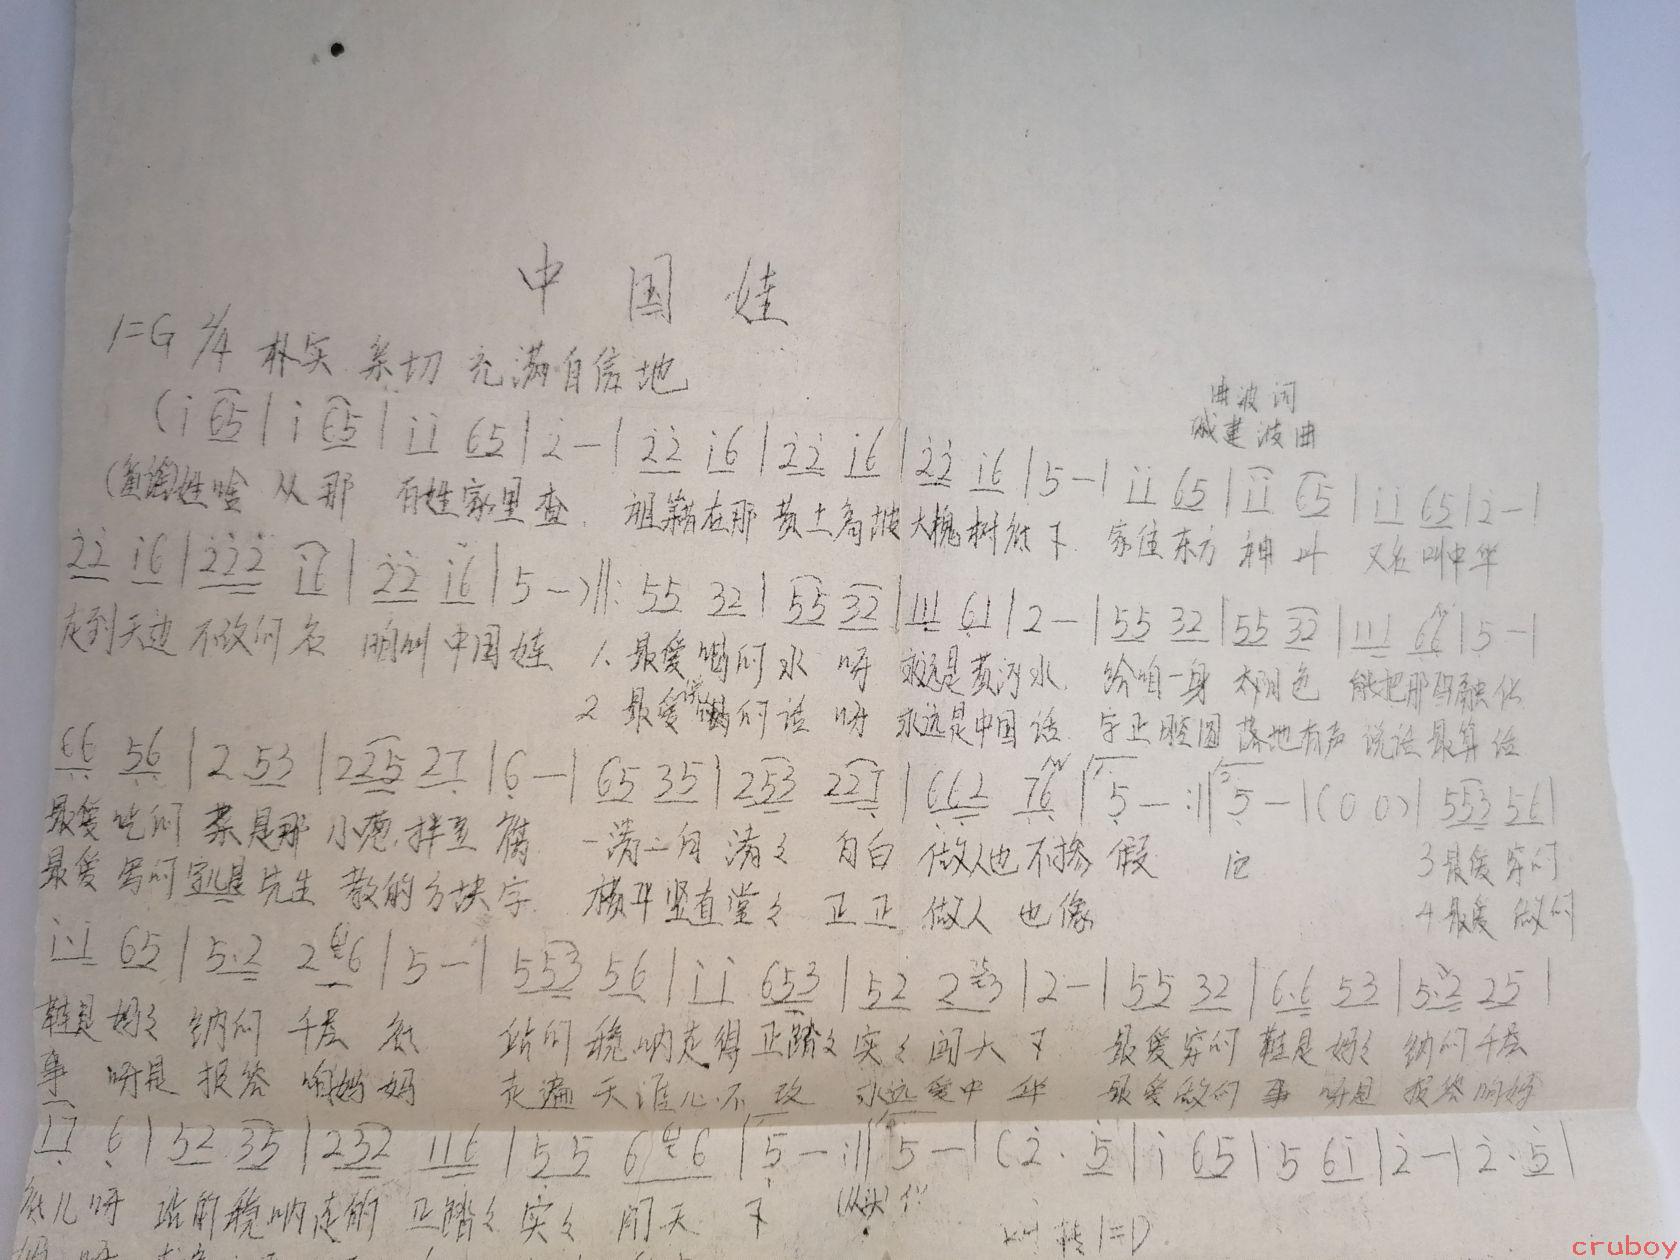 中国娃
1=G 2/4 朴实 亲切 充满自信地
曲波词
戚建波曲
(i 65 | i 65 | ii 65 | 2 — | 22 i6 | 22 i6 | 22 i6 | 5 — | ii 65 | ii 65 | ii 65 | 2 — |
姓啥 从那 百姓家里查 祖籍在那 黄土高坡大槐树底下 家住东方 神州 又名叫中华
22 i6 | 222 i6 | 22 i6 | 5 —) ‖: 55 32 | 55 32 | 111 61 | 2 — | 55 32 | 55 32 | 111 66 | 5 — |
走到天边 不改的名 咱叫中国娃 1. 最爱喝的水 呀 永远是黄河水 给咱一身 太阳色 能把那雪融化
2 最爱说的话 呀 永远是中国话 字正腔圆 落地有声 说话最算话
66 56 | 2 53 | 225 27 | 6 — | 65 35 | 253 227 | 662 76 | 5 — :‖ 5 — | (0 0) | 553 56 |
最爱吃的 菜是那 小葱拌豆腐 一清二白 清々 白白 做人也不掺假 3 最爱穿的
最爱写的字儿是先生 教的方块字 横平竖直堂々 正正 做人 也像它 4 最爱做的
i·i 65 | 5·2 2 6 | 5 — | 553 56 | ii 653 | 52 2 3 | 2 — | 55 32 | 6·6 53 | 5·2 25 |
鞋是妈々 纳的 千层底 站的稳呐走得正踏々实々闯天下 最爱穿的 鞋是妈々 纳的千层
事 呀是 报答 咱妈妈 走遍天涯心不改 永远爱中华 最爱做的 事 呀是 报答咱妈
17 6 | 52 35 | 232 116 | 55 6 6 | 5 — :‖ 5 — | (2· 5 | i 65 | 5 6i | 2 — | 2· 5 |
底儿呀 站的稳呐走的 正踏々实々 闯天下 (从头)
转1=D
妈 呀
cruboy